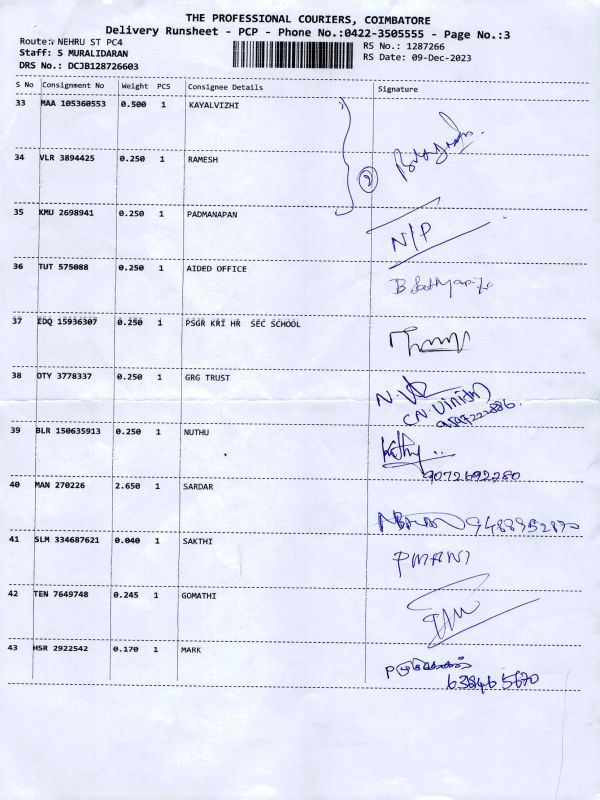 THE PROFESSIONAL COURIERS, COIMBATORE
Delivery Runsheet - PCP - Phone No.:0422-3505555 - Page No.:3
Route: NEHRU ST PC4
RS No.: 1287266
Staff: S MURALIDARAN
RS Date: 09-Dec-2023
DRS No.: DCJB128726603
S No Consignment No Weight PCS Consignee Details Signature
33 MAA 105360553 0.500 1 KAYALVIZHI
34 VLR 3894425 0.250 1 RAMESH
2
35 KMU 2698941 0.250 1 PADMANAPAN
N/P
36 TUT 575088 0.250 1 AIDED OFFICE
37 EDQ 15936307 0.250 1 PSGR KRI HR SEC SCHOOL
38 OTY 3778337 0.250 1 GRG TRUST
(N. Vinish)
39 BLR 150635913 0.250 1 NUTHU
9072692280
40 MAN 270226 2.650 1 SARDAR
41 SLM 334687621 0.040 1 SAKTHI
PMANI
42 TEN 7649748 0.245 1 GOMATHI
43 HSR 2922542 0.170 1 MARK